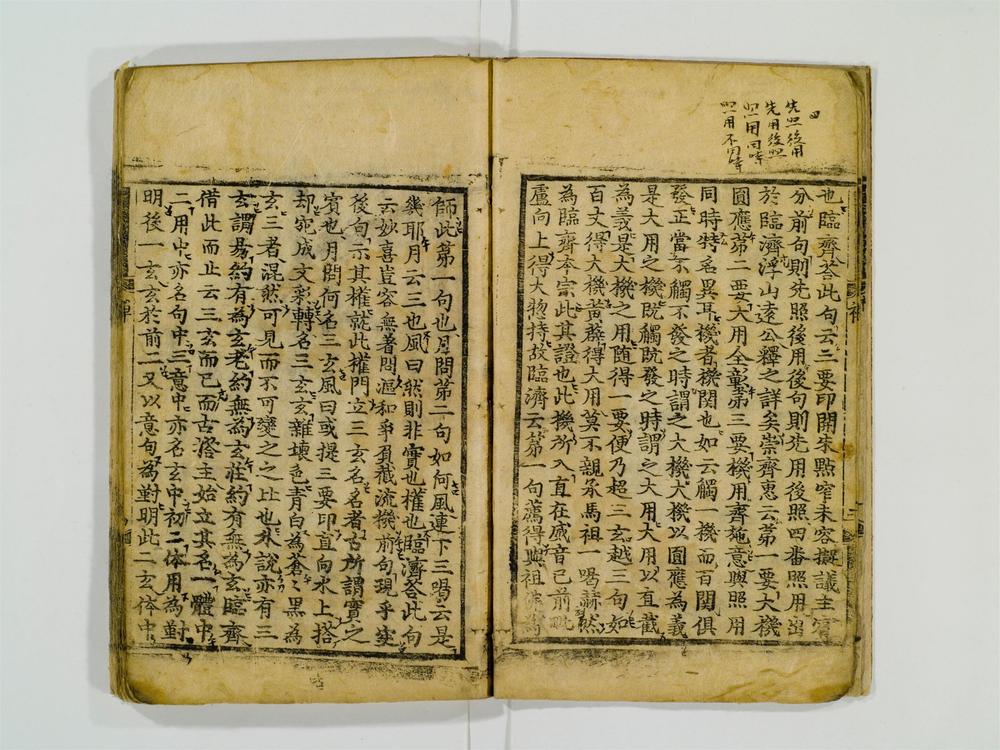 四
先照後用
先用後照
照用同時
照用不同時
也臨齊荅此句云三要印開朱㸃窄未容擬議主賓
分前句則先照後用後句則先用後照四番照用出
於臨濟浮山遠公釋之詳矣崇齊惠云第一要大機
圓應第二要大用全彰第三要機用齊施意與照用
同時特名異耳機者機関也如云觸一機而百関俱
發正當不觸不發之時謂之大機大機以圓應為義
是大用之機旣觸旣發之時謂之大用大用以直截
為義是大機之用随得一要便乃超三玄越三句如
百丈得大機黃蘗得大用莫不親承馬祖一喝赫然
為臨齊本宗此其證也此機所入直在威音已前毗
盧向上得大揔持故臨濟云第一句薦得與祖佛為
師此第一句也月問第二句如何風連下三喝云是
幾耶月云三也風曰然則非實也權也臨濟荅此句
云妙喜豈容無著問漚和爭負截流機前句現乎実
後句示其權就此權門立三玄名名者古所謂實之
賓也月問何名三玄風曰或提三要印直向水上搭
却宛成文彩轉名三玄玄雜壞色青白為蒼蒼黑為
玄三者混然可見而不可變之之比也外說亦有三
玄謂易約有為玄老約無為玄莊約有無為玄臨齊
借此而止云三玄而已而古塔主始立其名一體中
二用中亦名句中三意中亦名玄中初二体用為對
明後一玄玄於前二又以意句為對明此二玄体中
禅
禅